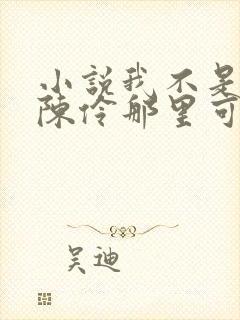 小說我不是
陳伶那里可
吴迪